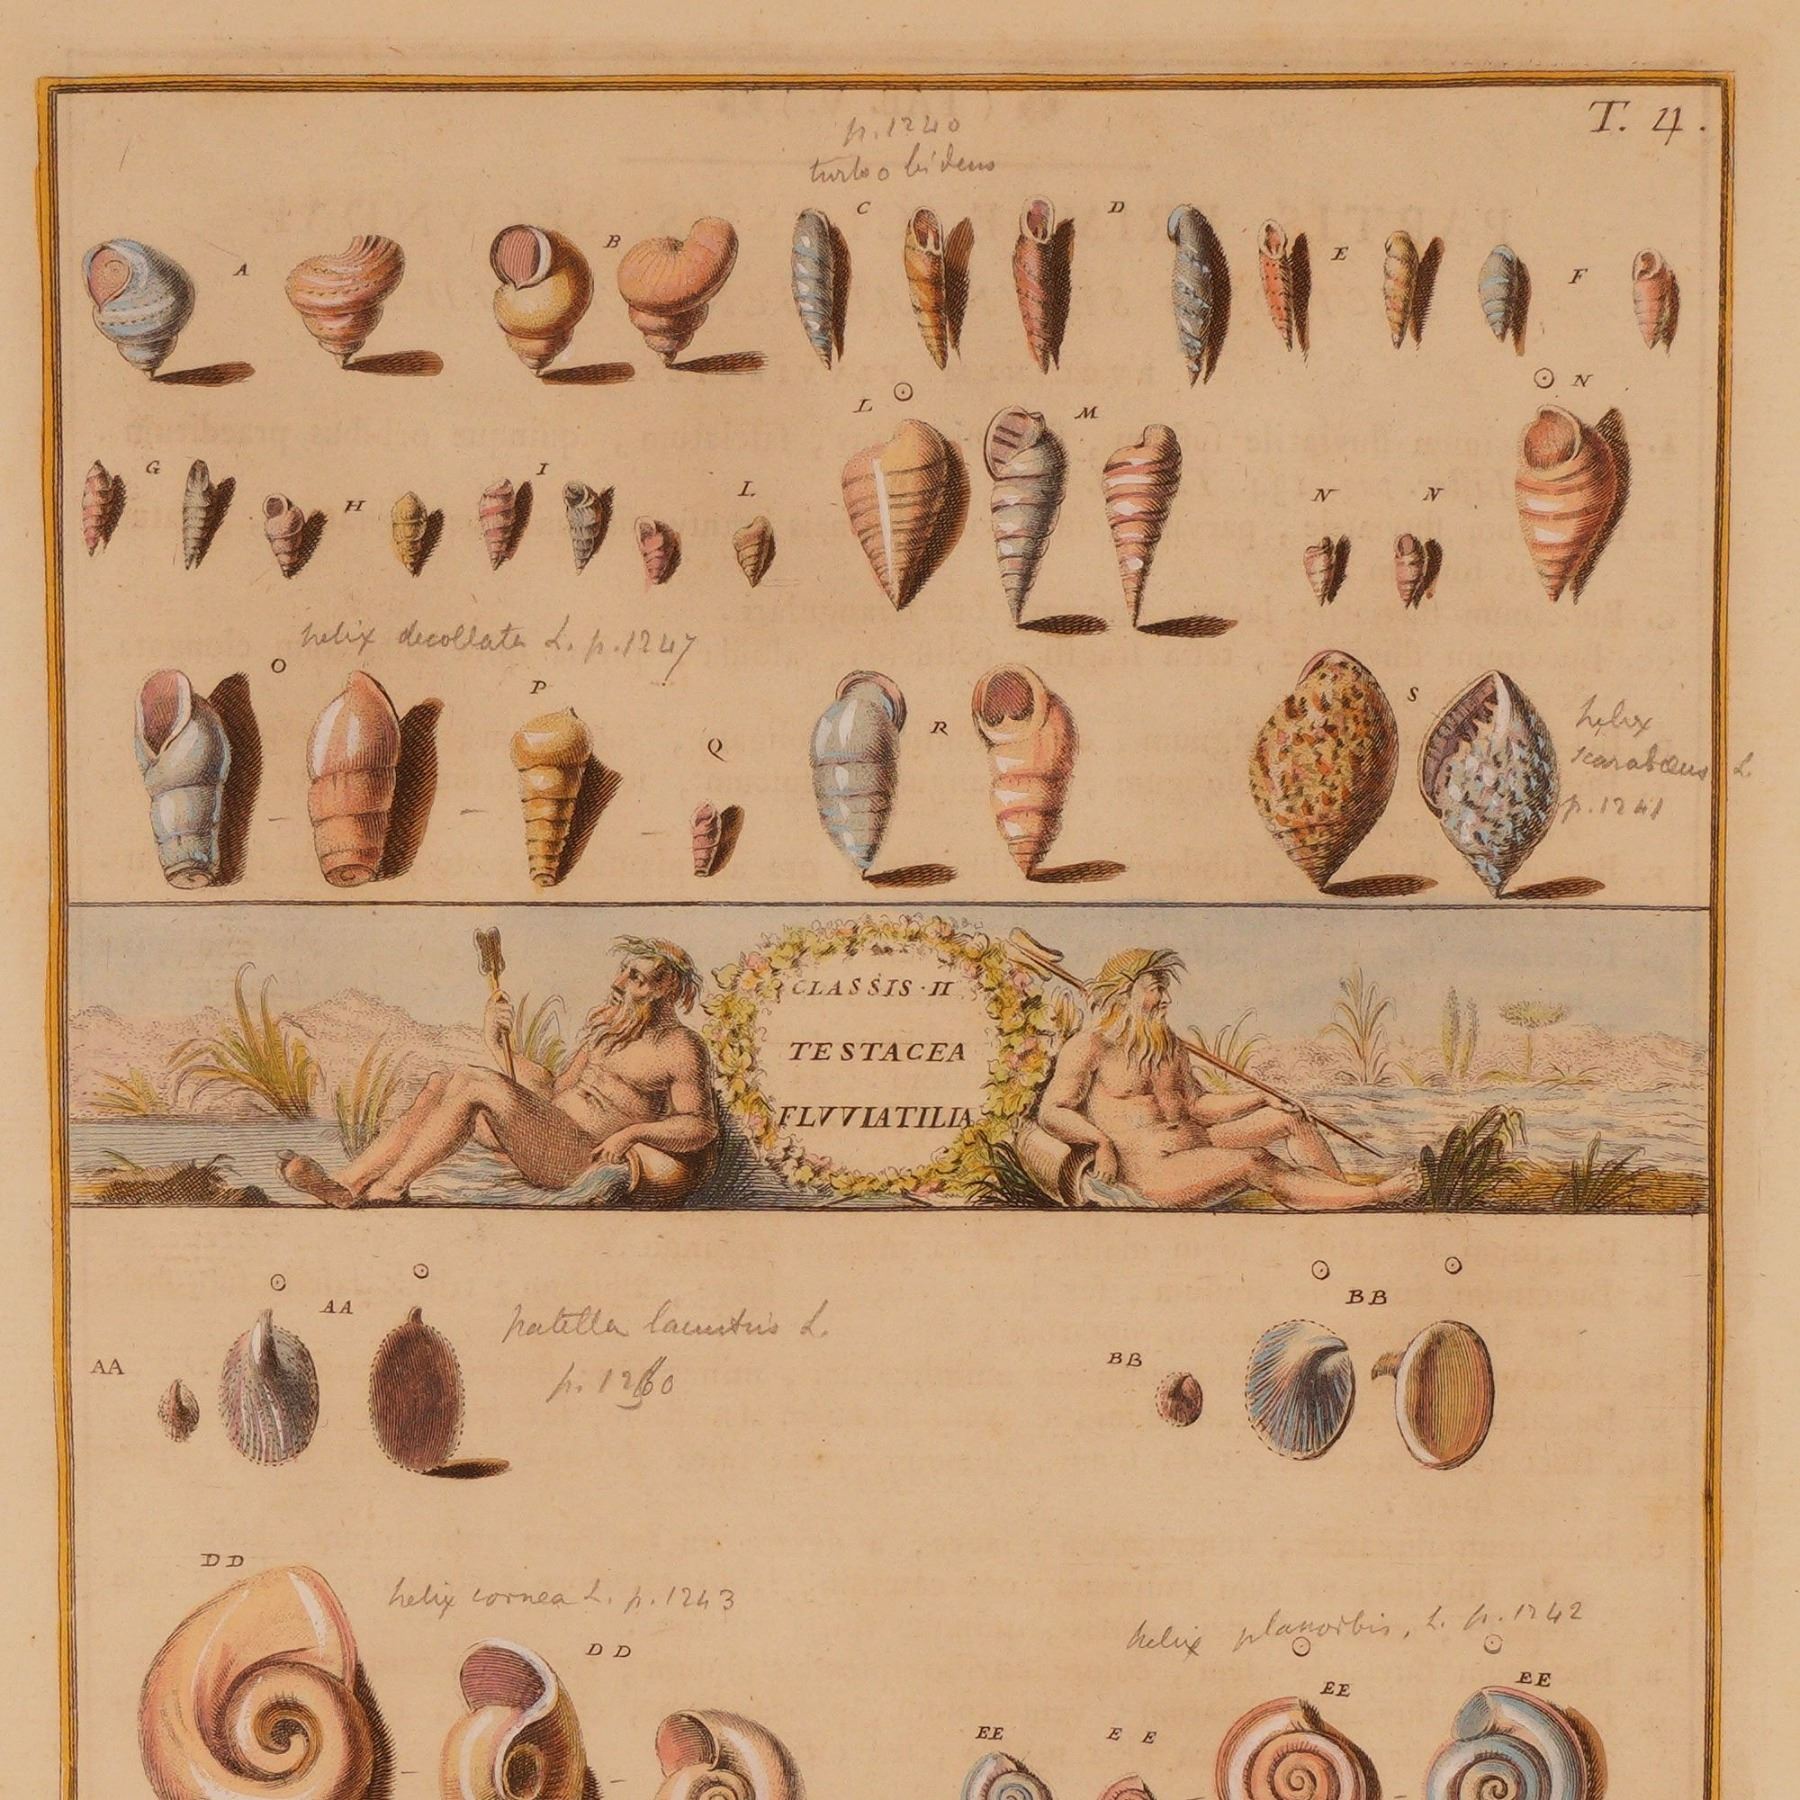 T. 4.
p. 1240
turbo bidens
A
B
C
D
E
F
G
H
I
L
L
M
N
N
N
helix decollata L. p. 1247
O
P
Q
R
S
helix
scarabæus L.
p. 1241
CLASSIS · II
TESTACEA
FLVVIATILIA
AA
AA
patella lacustris L.
p. 1260
BB
BB
DD
helix cornea L. p. 1243
DD
helix planorbis, L. p. 1242
EE
EE
EE
E E